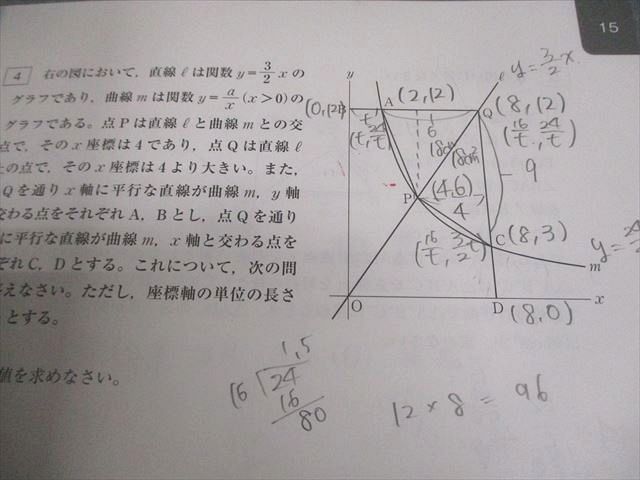 15
4 右の図において，直線ℓは関数 y=3/2 x の
グラフであり，曲線mは関数 y=a/x (x>0)の
グラフである。点Pは直線ℓと曲線mとの交
点で，そのx座標は4であり，点Qは直線ℓ
上の点で，そのx座標は4より大きい。また，
Qを通りx軸に平行な直線が曲線m，y軸
交わる点をそれぞれA，Bとし，点Qを通り
に平行な直線が曲線m，x軸と交わる点を
ぞれC，Dとする。これについて，次の問
えなさい。ただし，座標軸の単位の長さ
とする。
値を求めなさい。
y
ℓ
y=3/2 x
(0,12)
B
A
(2,12)
Q
(8,12)
(16/t, 24/t)
6
9
P
(4,6)
4
C
(8,3)
m
x
O
D
(8,0)
1,5
16
24
16
80
12×8=96